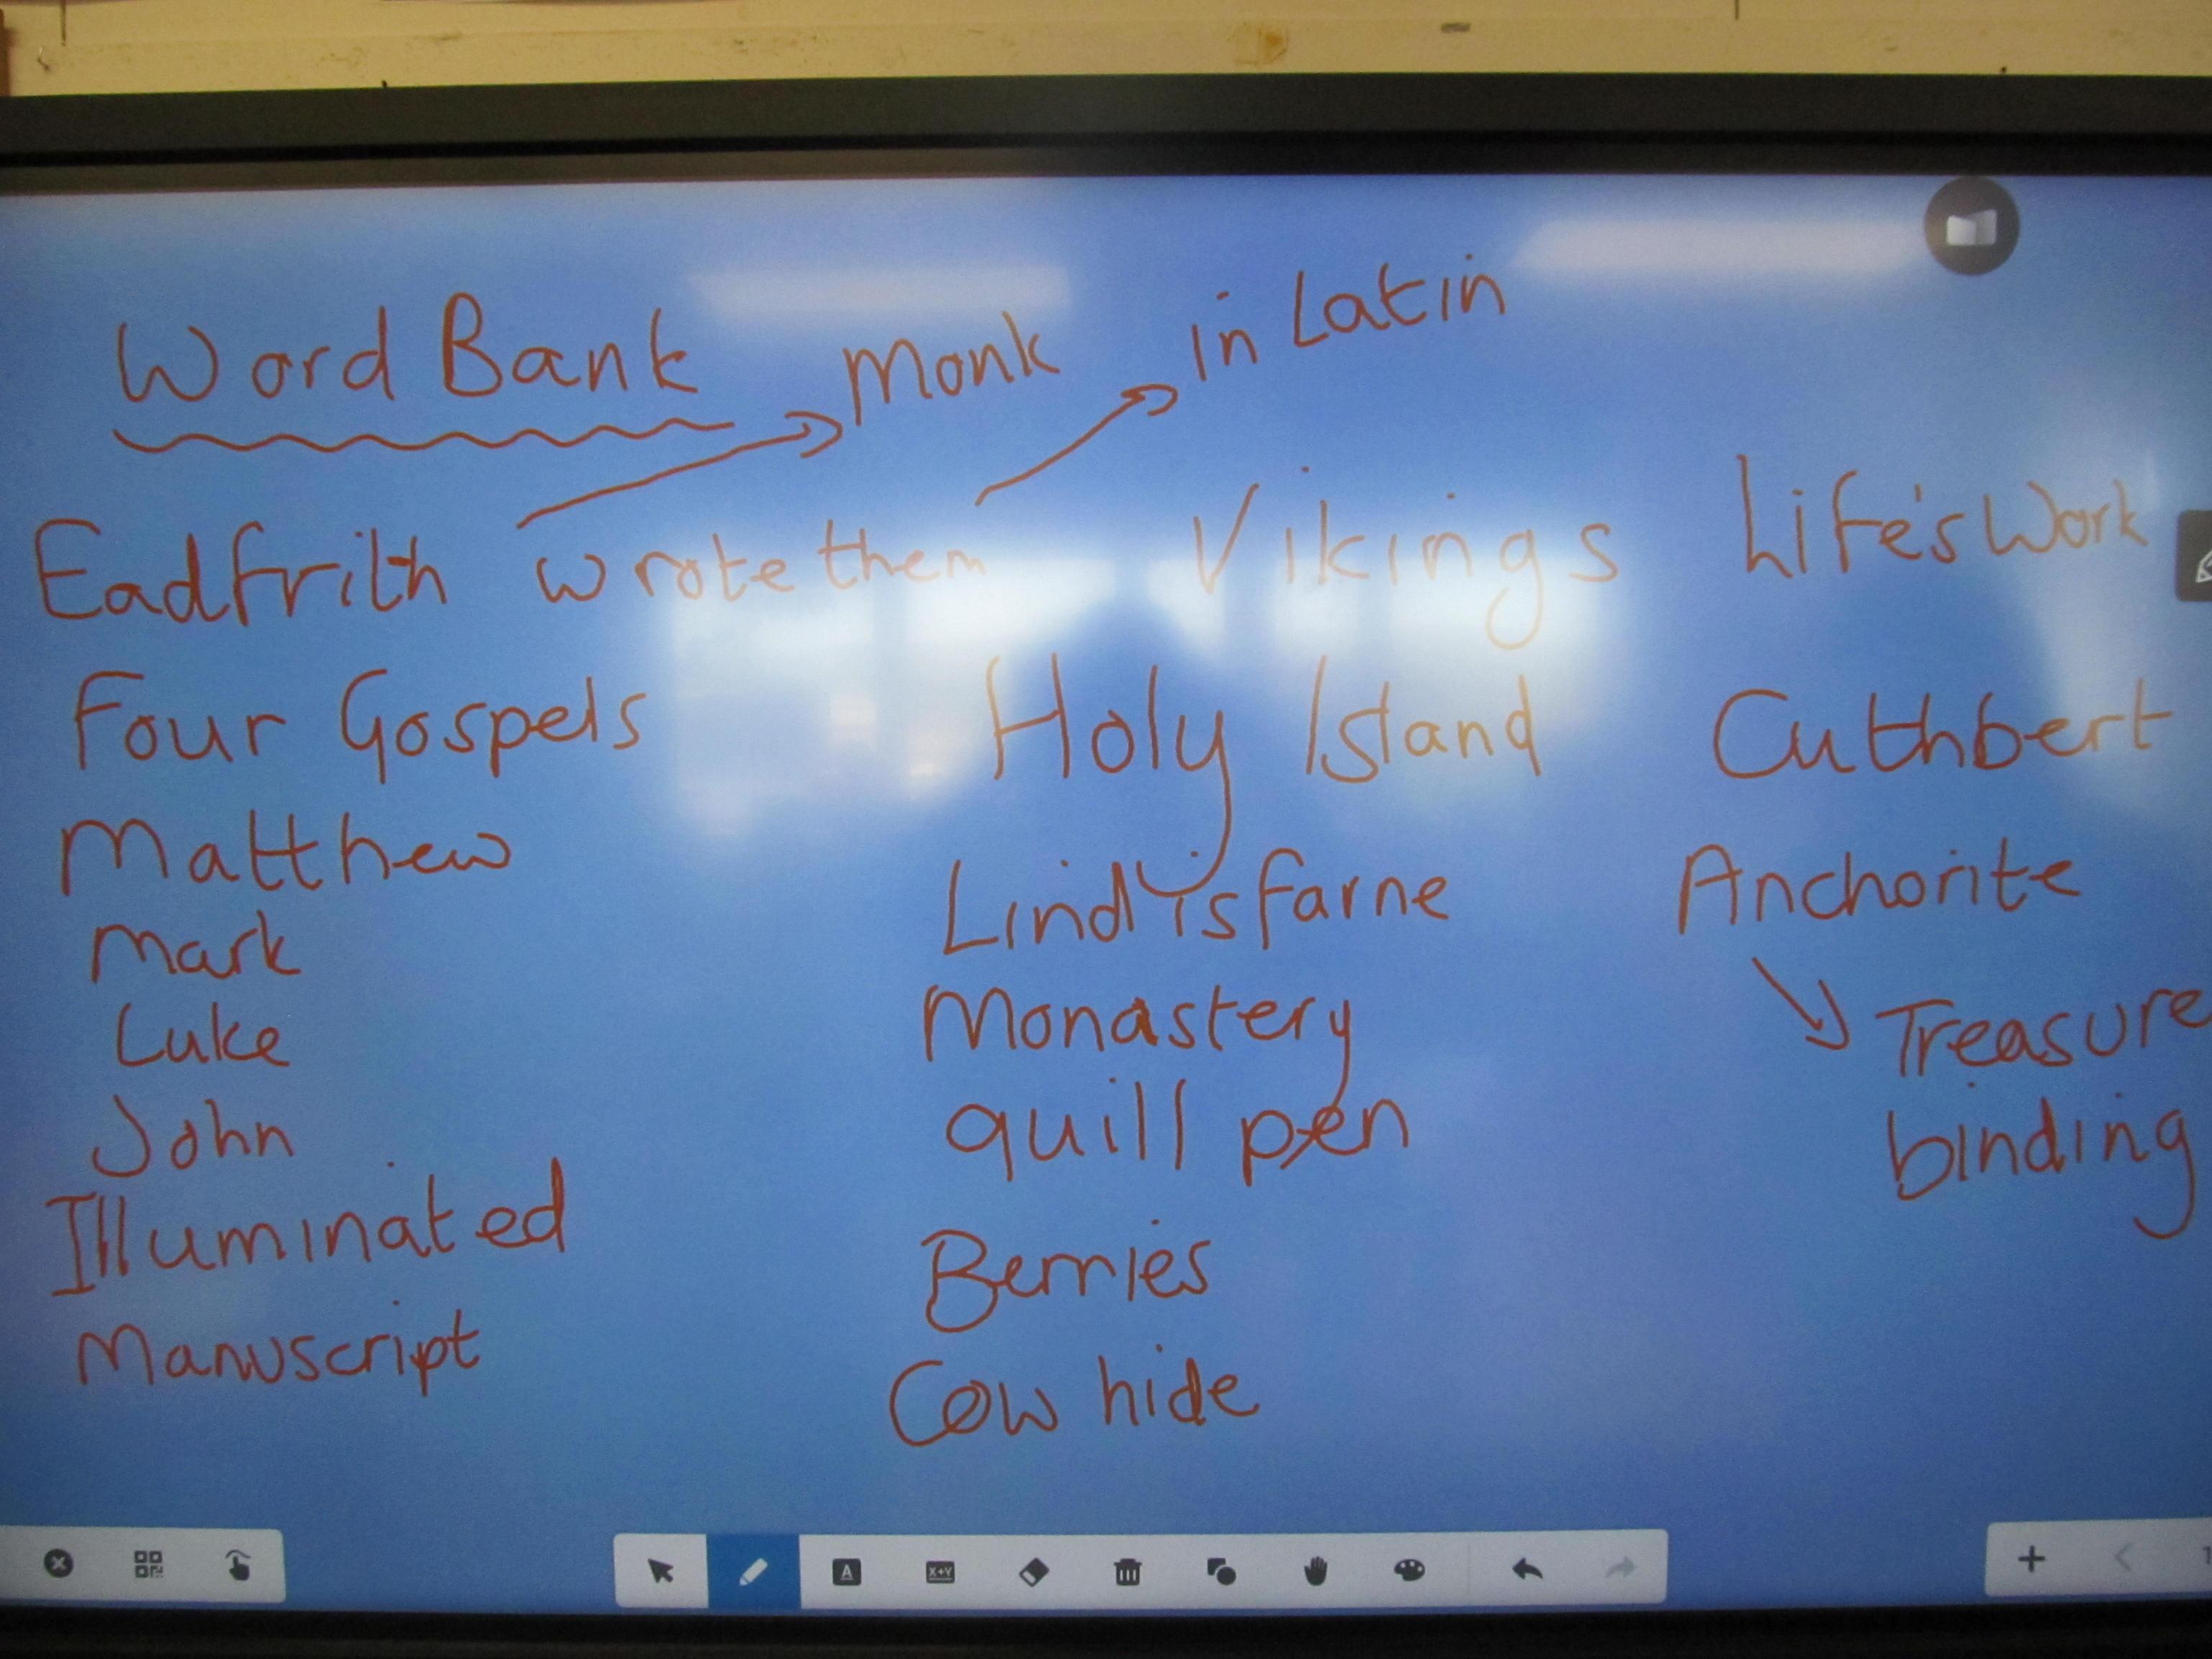 Word Bank
Monk
in Latin
Eadfrith wrote them
Four Gospels
Matthew
Mark
Luke
John
Illuminated
Manuscript
Vikings
Holy Island
Lindisfarne
Monastery
quill pen
Berries
Cow hide
Life's Work
Cuthbert
Anchorite
Treasure
binding
A
X+Y
1